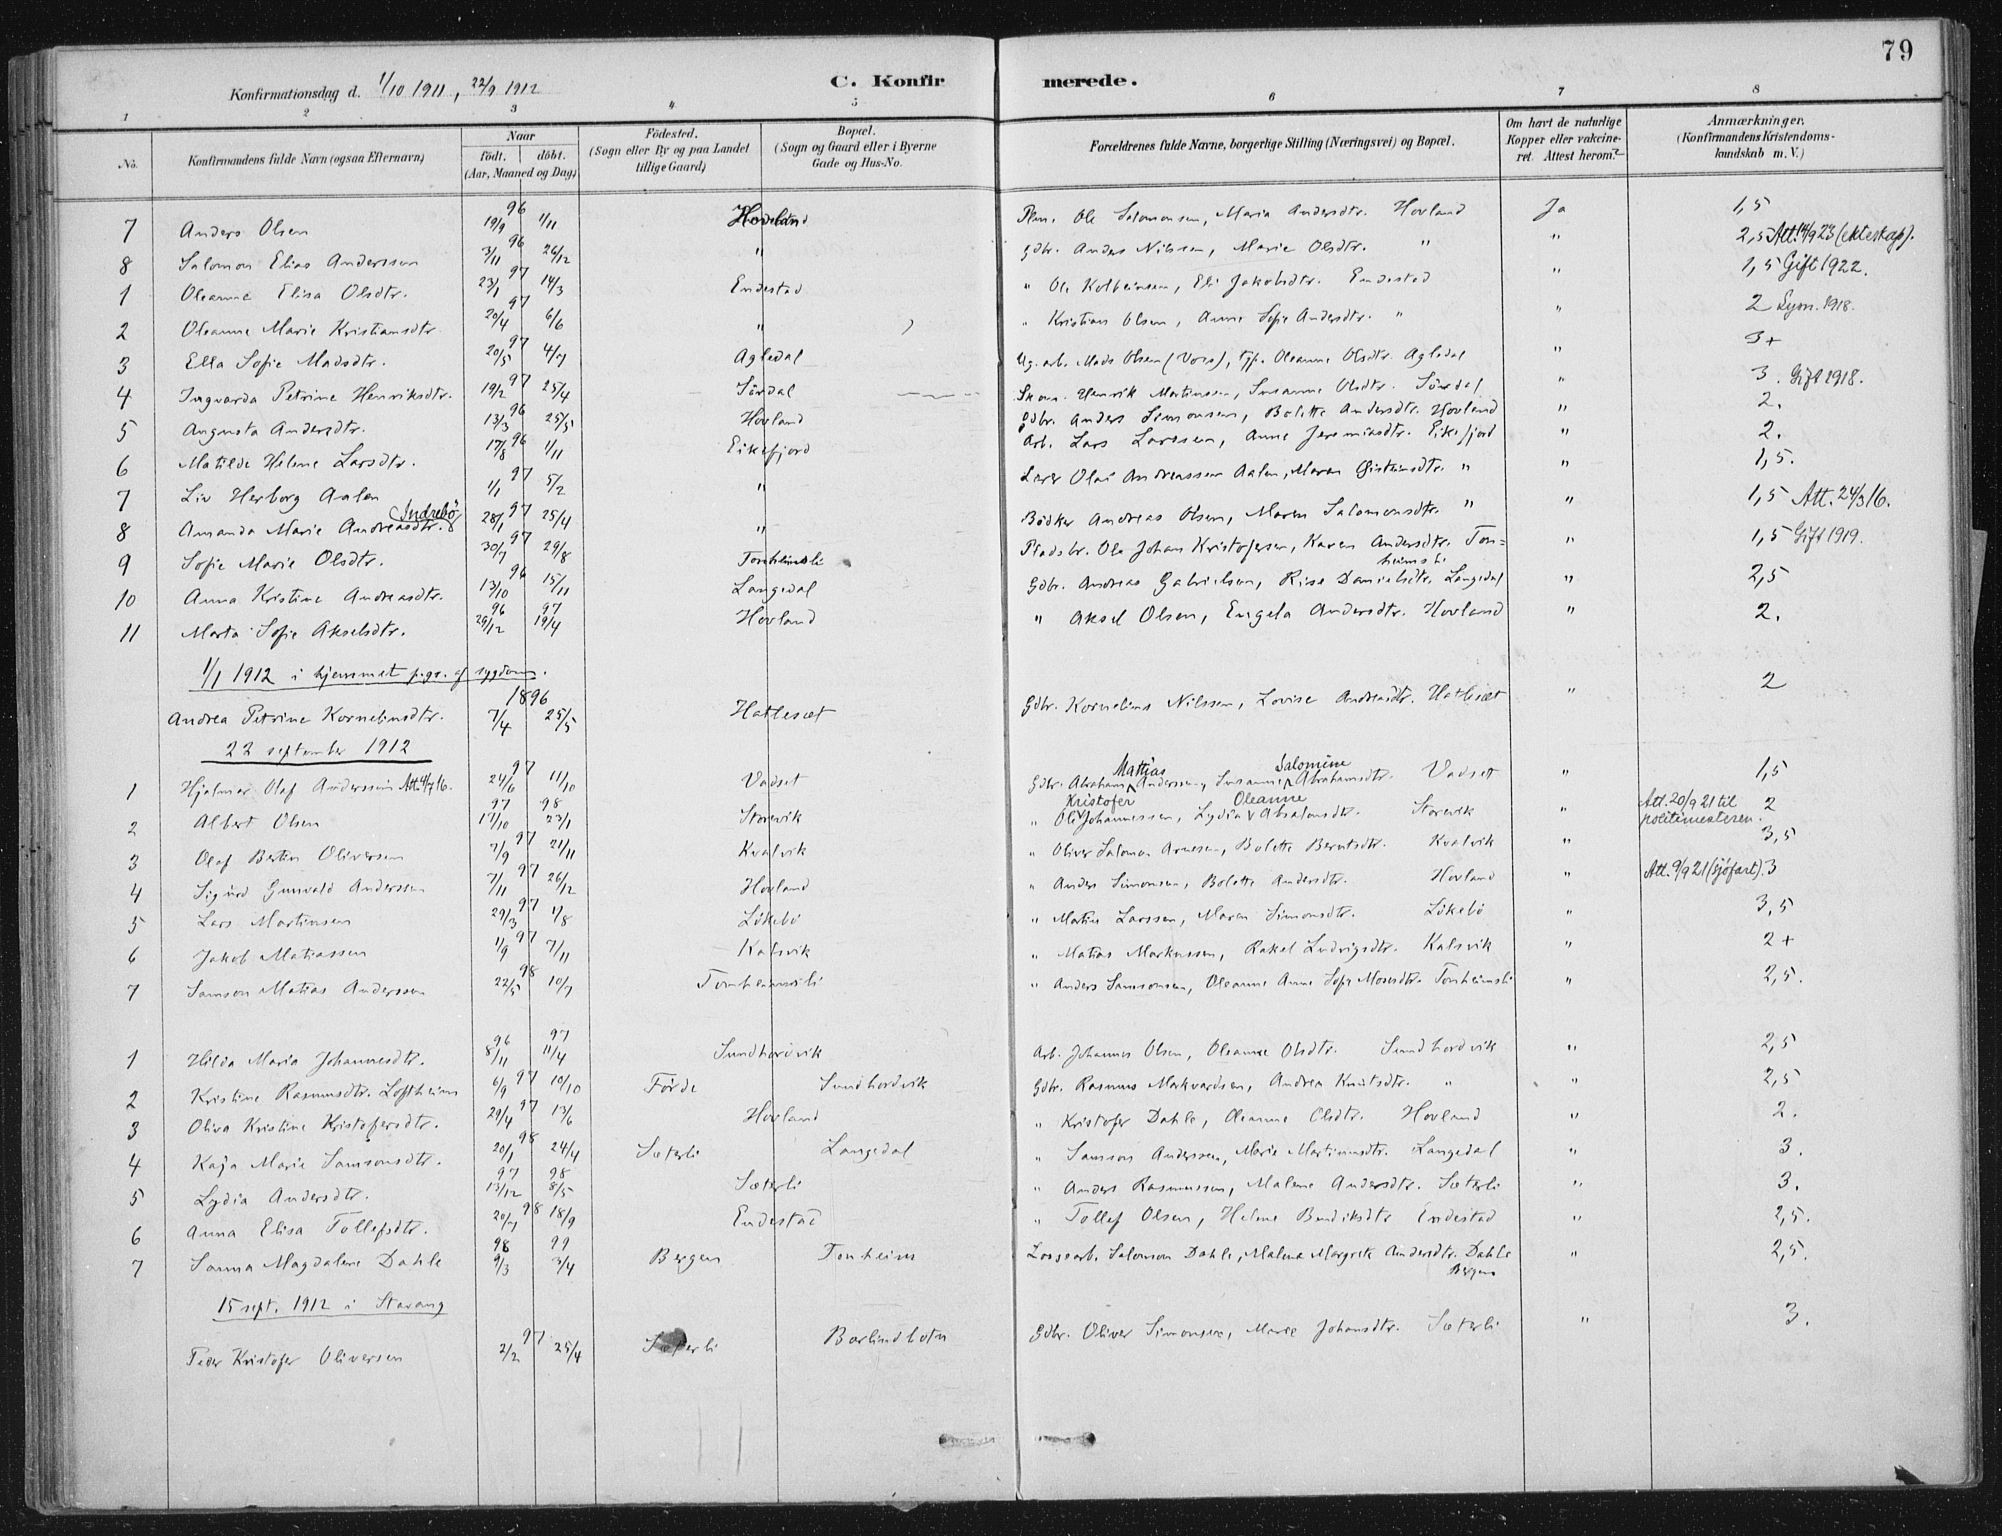 79
Konfirmationsdag d. 1/10 1911, 22/9 1912 C. Konfirmerede.
1 2 3 4 5 6 7 8
No. Konfirmandens fulde Navn (ogsaa Efternavn) Naar födt. döbt. (Aar, Maaned og Dag) Födested. (Sogn eller By og paa Landet tillige Gaard) Bopæl. (Sogn og Gaard eller i Byerne Gade og Hus-No. Forældrenes fulde Navne, borgerlige Stilling (Næringsvei) og Bopæl. Om havt de naturlige Kopper eller vakcineret. Attest herom? Anmærkninger. (Konfirmandens Kristendomskundskab m. V.)
7 Anders Olsen 19/9 96 1/11 Hovland Ole Salomonsen, Maria Andersdtr. Hovland Ja 1,5
8 Salomon Elias Anderssen 3/11 96 26/12 " Gdbr. Anders Nilssen, Marie Olsdtr. " " 2,5 Att. 14/9 23 (ekteskap).
1 Oleanne Elisa Olsdtr. 23/1 97 14/3 Endestad " Ole Kolbeinsen, Eli Jakobsdtr. Endestad " 1,5 Gift 1922.
2 Oleanne Marie Kristiansdtr. 20/4 97 6/6 " " Kristian Olsen, Anne Sofie Andersdtr. " " 2 Lysn. 1918.
3 Ella Sofie Madsdtr. 20/5 97 4/7 Agledal Ug. arb. Mads Olsen (Voss), Oleanne Olsdtr. Agledal " 3+
4 Ingvarda Petrine Henriksdtr. 19/2 97 25/4 Sördal Skom. Henrik Martinsen, Susanne Olsdtr. Sördal " 3. Gift 1918.
5 Augusta Andersdtr. 13/3 96 25/5 Hovland Gdbr. Anders Simonsen, Bolette Andersdtr. Hovland " 2.
6 Matilde Helene Larsdtr. 17/8 96 1/11 Eikefjord Arb. Lars Larssen, Anne Jeremiasdtr. Eikefjord " 2.
7 Liv Herborg Aalen 1/1 97 5/2 " Lærer Olai Andreassen Aalen, Maren Eisteinsdtr. " " 1,5.
8 Amanda Marie Andreasdtr. Indrebö 28/1 97 25/4 " Bödker Andreas Olsen, Maren Salomonsdtr. " " 1,5 Att. 24/3 16.
9 Sofie Marie Olsdtr. 30/7 97 29/8 Tonheimsli Pladsbr. Ole Johan Kristofersen, Karen Andersdtr. Tonheimsli " 1,5 Gift 1919.
10 Anna Kristine Andreasdtr. 13/10 96 15/11 Langedal Gdbr. Andreas Gabrielsen, Rise Danielsdtr. Langedal " 2,5
11 Marta Sofie Akselsdtr. 29/12 96 19/4 97 Hovland " Aksel Olsen, Engela Andersdtr. Hovland " 2.
1/1 1912 i hjemmet p.gr. af sygdom.
Andrea Petrine Kornelinsdtr. 7/4 1896 25/5 Hatlesæt Gdbr. Kornelius Nilssen, Lovise Andreasdtr. Hatlesæt " 2
22 september 1912
1 Hjalmar Olaf Anderssen Att. 4/7 16. 24/6 97 11/10 Vadset Gdbr. Abraham Mathias Anderssen, Susanne Salomine Abrahamsdtr. Vadset " 1,5
2 Albert Olsen 17/10 97 23/1 98 Storevik " Ole Kristofer Johannessen, Lydia Oleanne Absalonsdtr. Storevik " Att. 20/9 21 til politimesteren. 2
3 Olaf Bertin Oliversen 7/9 97 21/11 Kvalvik " Oliver Salomon Arnesen, Bolette Berntsdtr. Kvalvik " 3,5
4 Sigurd Gunvald Anderssen 7/11 97 26/12 Hovland " Anders Simonsen, Bolette Andersdtr. Hovland " Att. 9/9 21 (sjöfart). 3
5 Lars Martinsen 29/3 97 1/8 Lökebö " Martin Larssen, Maren Simonsdtr. Lökebö " 3,5
6 Jakob Matiassen 1/9 97 7/11 Kalsvik " Matias Markussen, Rakel Ludvigsdtr. Kalsvik " 2+
7 Samson Matias Anderssen 22/5 98 10/7 Tonheimsli " Anders Samsonsen, Oleanne Anne Sofie Monsdtr. Tonheimsli " 2,5.
1 Hilda Maria Johannesdtr. 8/11 96 11/4 97 Sundhordvik Arb. Johannes Olsen, Oleanne Olsdtr. Sundhordvik " 2,5
2 Kristine Rasmusdtr. Loftheim 6/9 97 10/10 Förde Sundhordvik Gdbr. Rasmus Markvardsen, Andrea Knutsdtr. " " 2,5
3 Oliva Kristine Kristofersdtr. 29/4 97 13/6 Hovland " Kristofer Dahle, Oleanne Olsdtr. Hovland " 2.
4 Kaja Marie Samsonsdtr. 20/1 98 24/4 Sæterli Langedal " Samson Anderssen, Marie Martinusdtr. Langedal " 3.
5 Lydia Andersdtr. 13/12 97 8/5 98 Sæterli " Anders Rasmussen, Malene Andersdtr. Sæterli " 3.
6 Anna Elisa Tollefsdtr. 20/7 98 18/9 Endestad " Tollef Olsen, Helene Bendiksdtr Endestad " 2,5.
7 Sanna Magdalene Dahle 9/3 98 3/4 99 Bergen Tonheim Lossearb. Salomon Dahle, Malena Margrete Andersdtr. Dahle Bergen " 2,5.
15 sept. 1912 i Stavang
Peder Kristofer Oliversen 2/2 97 25/4 Sæterli Barlindbotn Gdbr. Oliver Simonsen, Marie Johansdtr. Sæterli " 3.